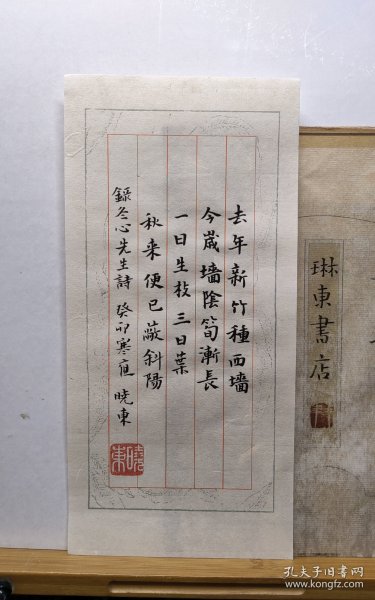 去年新竹種西墻
今歲墻陰筍漸長
一日生枝三日葉
秋来便已蔽斜陽
錄冬心先生詩 癸卯寒夜 曉東
曉東
琳東書店
孔夫子旧书网